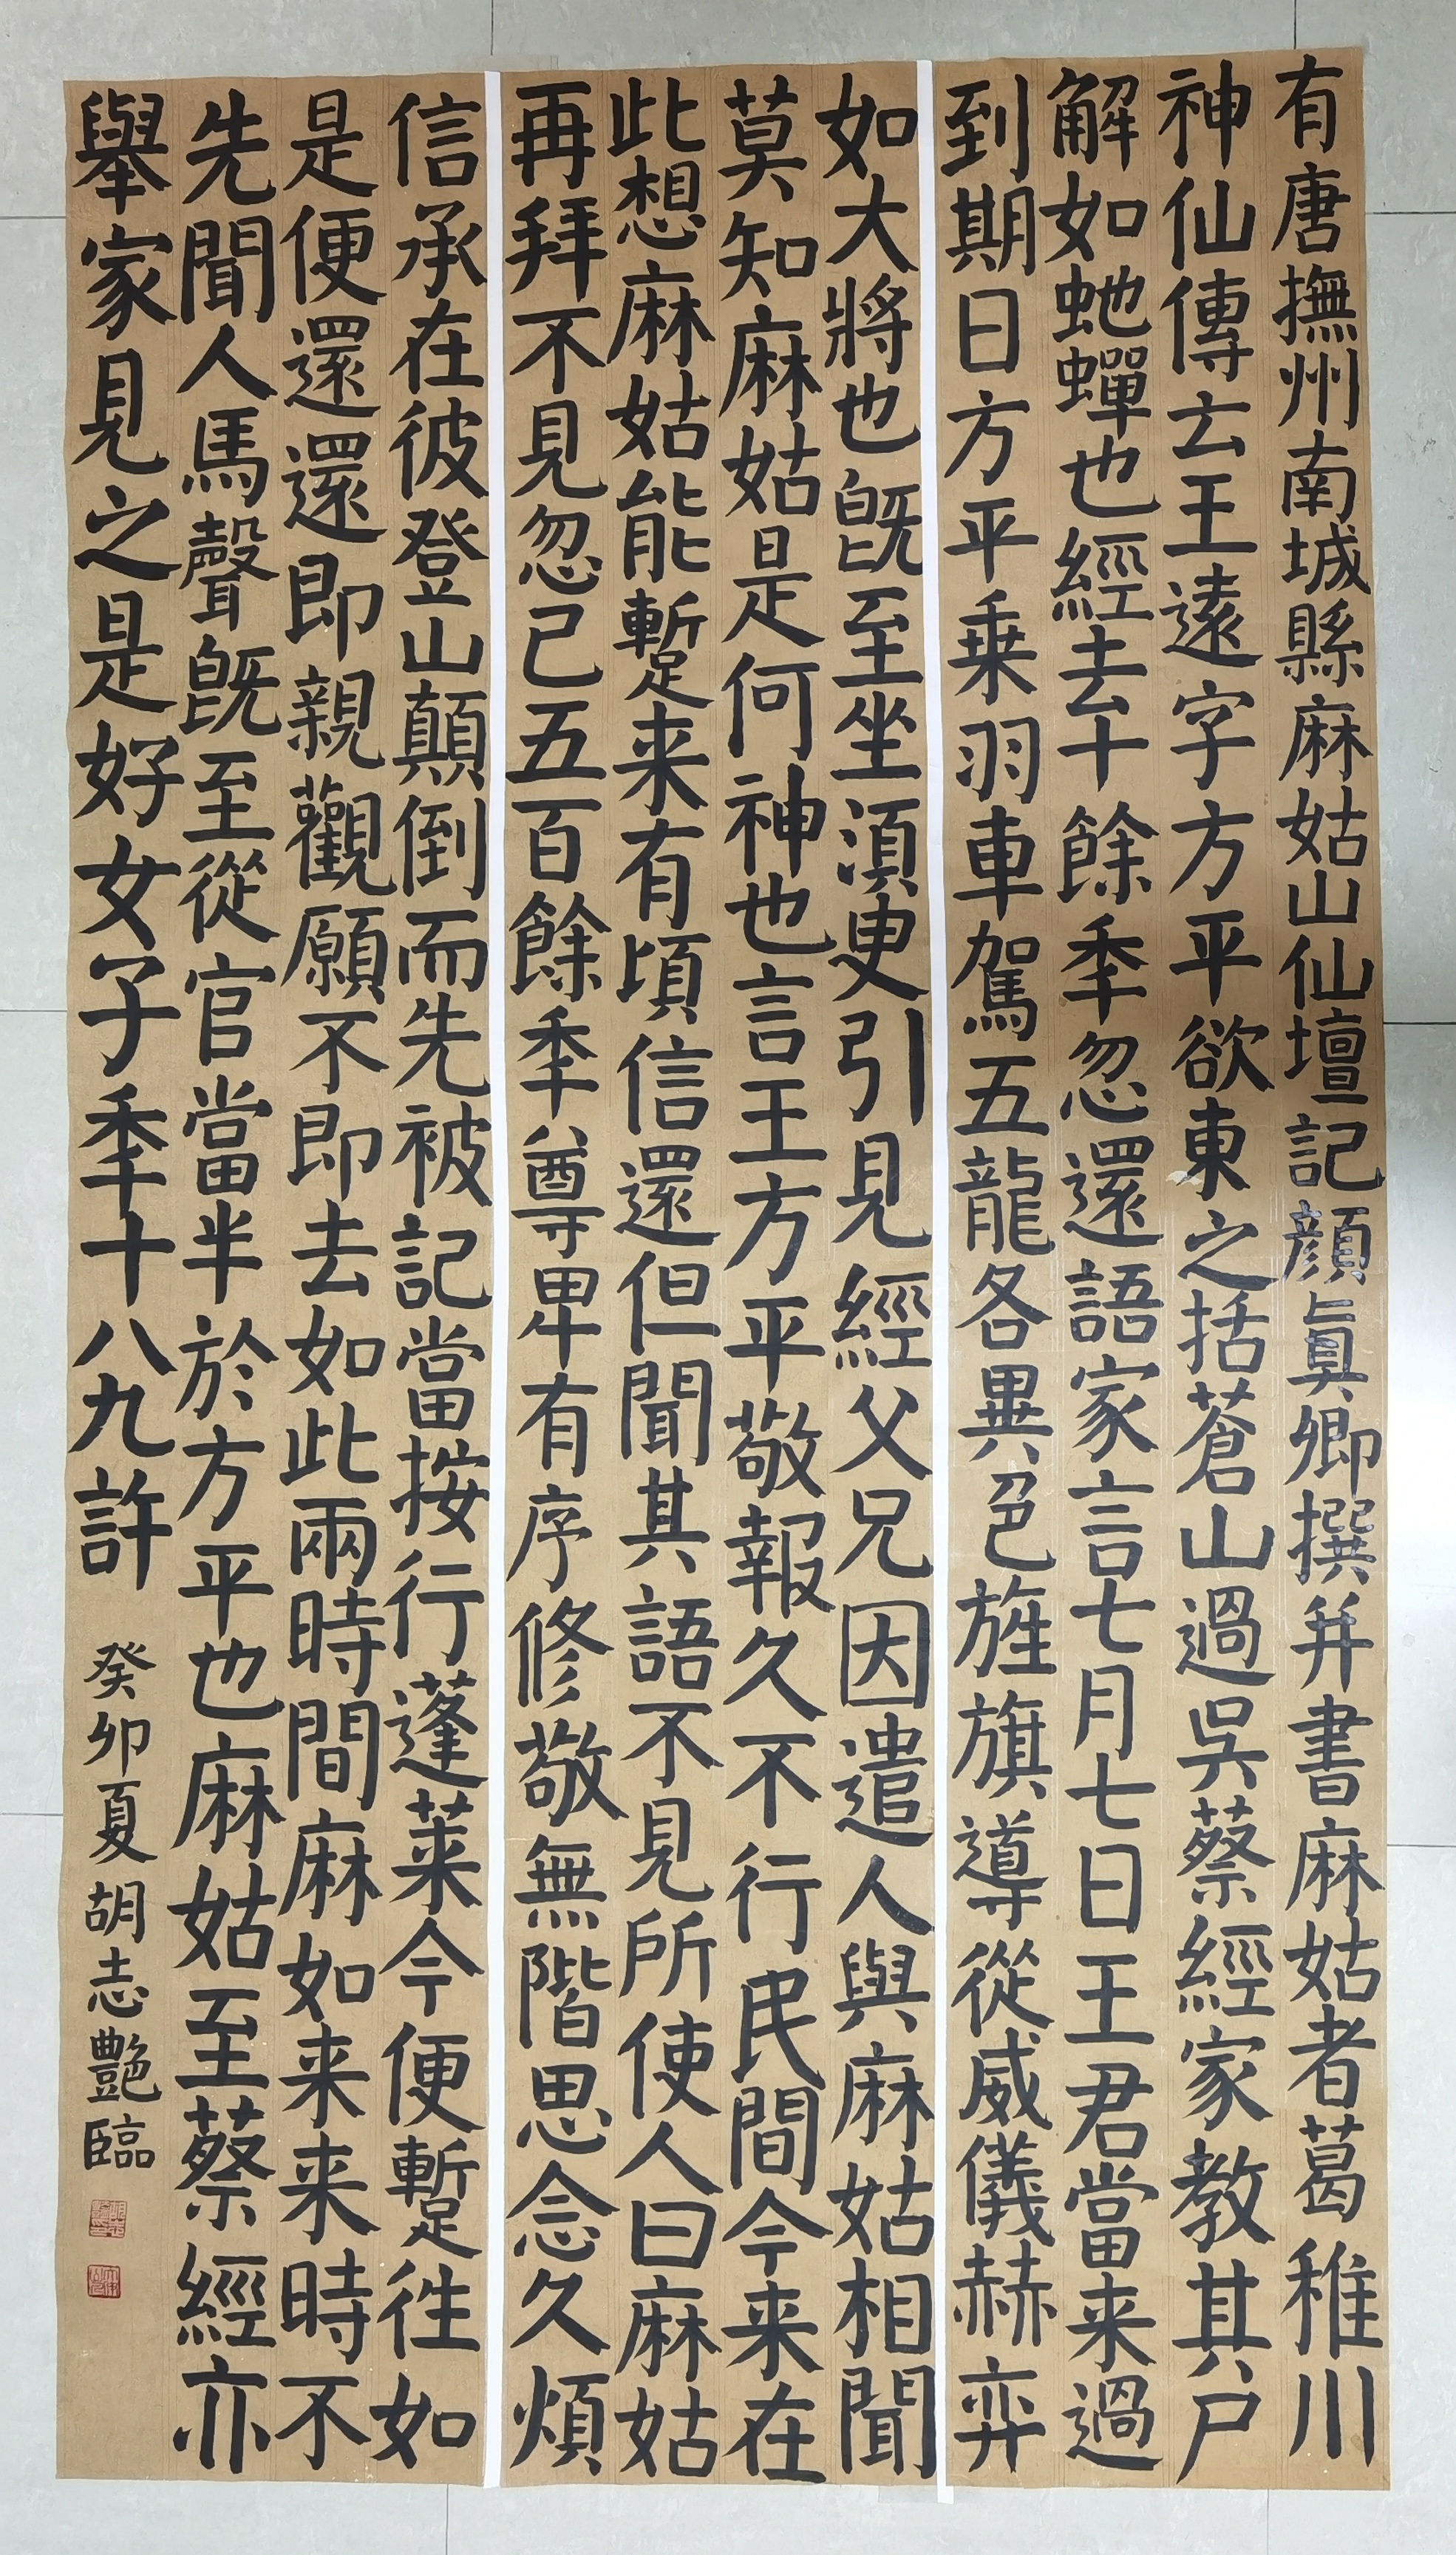 有唐撫州南城縣麻姑山仙壇記顏眞卿撰并書麻姑者葛稚川
神仙傳云王遠字方平欲東之括蒼山過吳蔡經家教其尸
解如虵蟬也經去十餘秊忽還語家言七月七日王君當来過
到期日方平乗羽車駕五龍各異色旌旗導從威儀赫弈
如大將也旣至坐湏叟引見經父兄因遣人與麻姑相聞
莫知麻姑是何神也言王方平敬報久不行民間今来在
此想麻姑能蹔来有頃信還但聞其語不見所使人曰麻姑
再拜不見忽已五百餘秊尊卑有序修敬無階思念久煩
信承在彼登山顛倒而先被記當按行蓬莱今便蹔徃如
是便還還即親觀願不即去如此兩時間麻姑如来来時不
先聞人馬聲旣至從官當半於方平也麻姑至蔡經亦
舉家見之是好女子秊十八九許 癸卯夏胡志艷臨